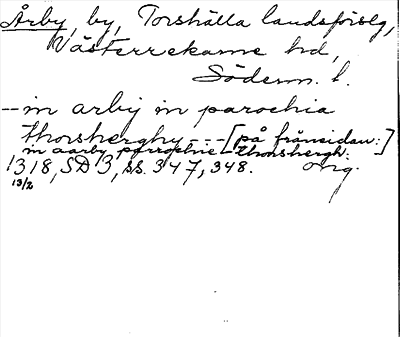 Årby, by, Torshälla landsförslg,
Västerrekarne hd,
Söderm. l.
-- in arby in parochia
thorsherghy --- [på främsidan:]
in aarby parrochie thorshergh:
1318, SD 3, ss. 347, 348. orig.
13/2